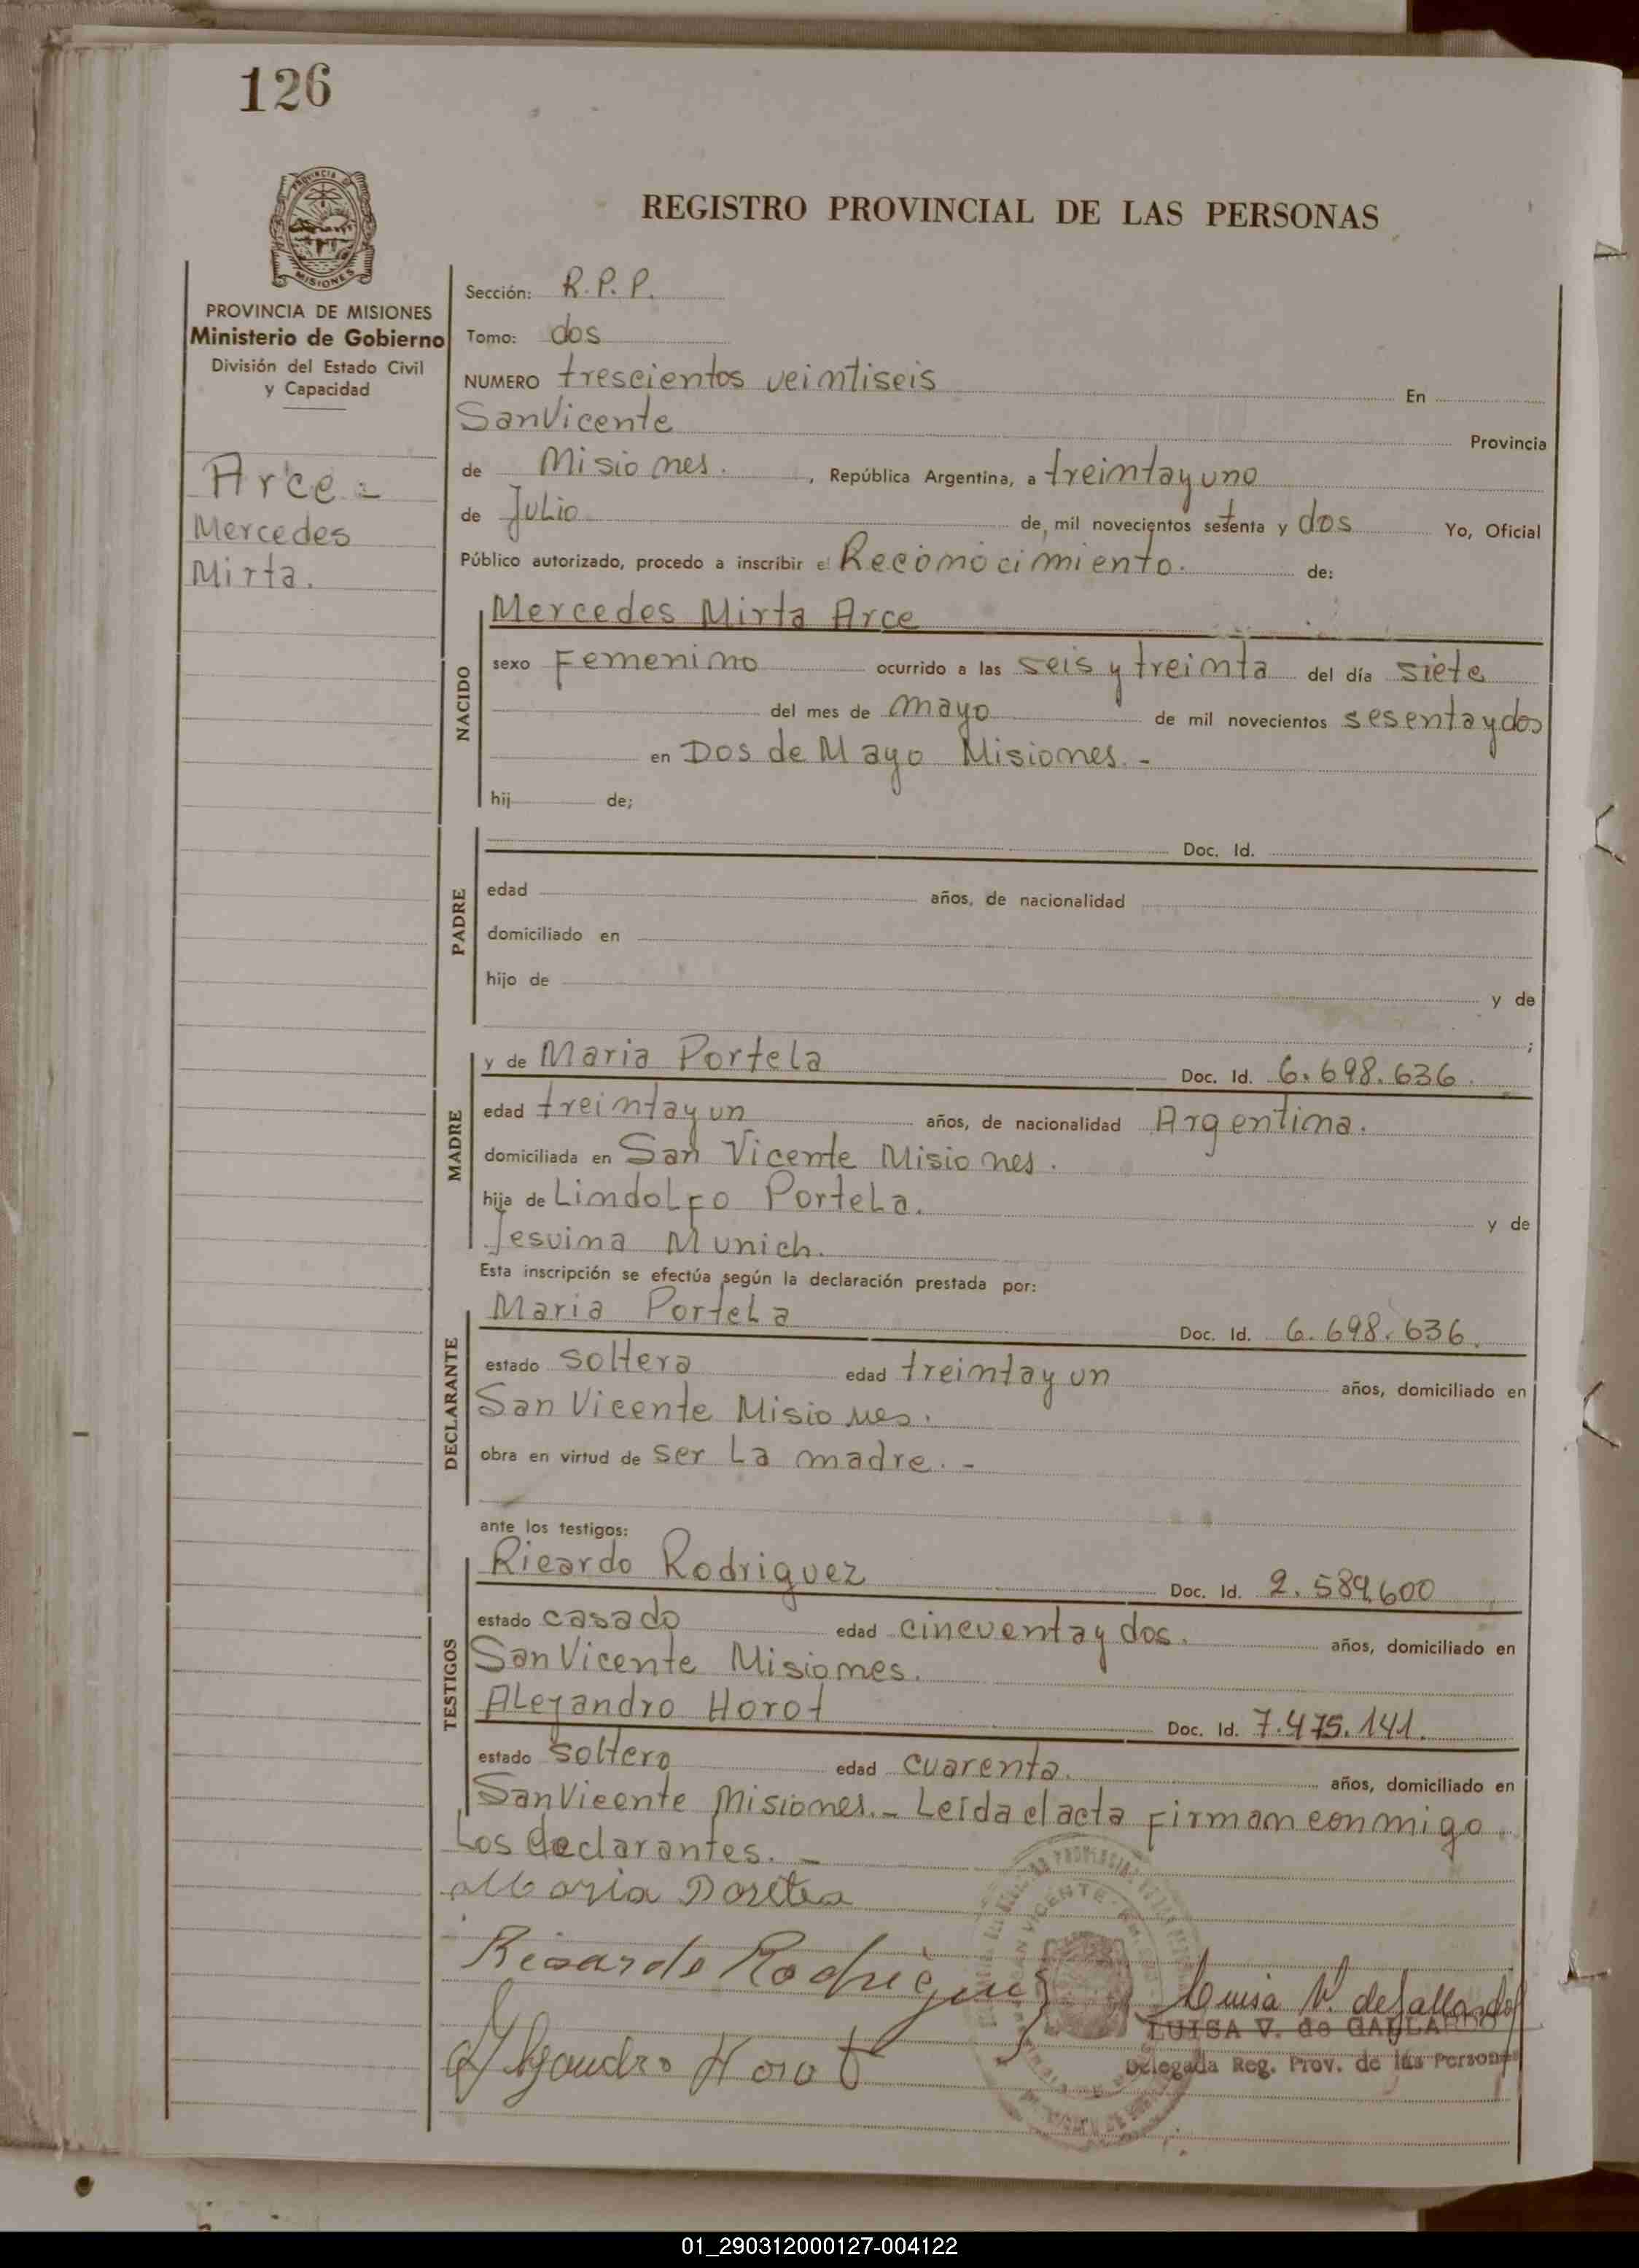 126
REGISTRO PROVINCIAL DE LAS PERSONAS
PROVINCIA DE MISIONES
Ministerio de Gobierno
División del Estado Civil
y Capacidad
Arce =
Mercedes
Mirta.
Sección: R.P.P.
Tomo: dos
NUMERO trescientos veintiseis En
San Vicente Provincia
de Misiones. , República Argentina, a treintayuno
de Julio de mil novecientos setenta y dos Yo, Oficial
Público autorizado, procedo a inscribir el Reconocimiento. de:
NACIDO
Mercedes Mirta Arce
sexo Femenino ocurrido a las seis y treinta del día siete
del mes de mayo de mil novecientos sesentaydos
en Dos de Mayo Misiones. -
hij de;
PADRE
Doc. Id.
edad años, de nacionalidad
domiciliado en
hijo de y de
;
MADRE
y de Maria Portela Doc. Id. 6.698.636.
edad treintayun años, de nacionalidad Argentina.
domiciliada en San Vicente Misiones.
hija de Lindolfo Portela. y de
Jesuina Munich.
Esta inscripción se efectúa según la declaración prestada por:
DECLARANTE
Maria Portela Doc. Id. 6.698.636.
estado soltera edad treintayun años, domiciliado en
San Vicente Misiones.
obra en virtud de ser la madre. -
ante los testigos:
TESTIGOS
Ricardo Rodriguez Doc. Id. 2.589.600
estado casado edad cincuentaydos. años, domiciliado en
San Vicente Misiones.
Alejandro Horot Doc. Id. 7.475.141.
estado soltero edad cuarenta. años, domiciliado en
San Vicente Misiones. - Leída el acta firman conmigo
Los declarantes. -
Maria
Ricardo Rodriguez
Luisa V. de Gallardo
LUISA V. de GALLARDO
Alejandro Horot
Delegada Reg. Prov. de las Personas
01_290312000127-004122